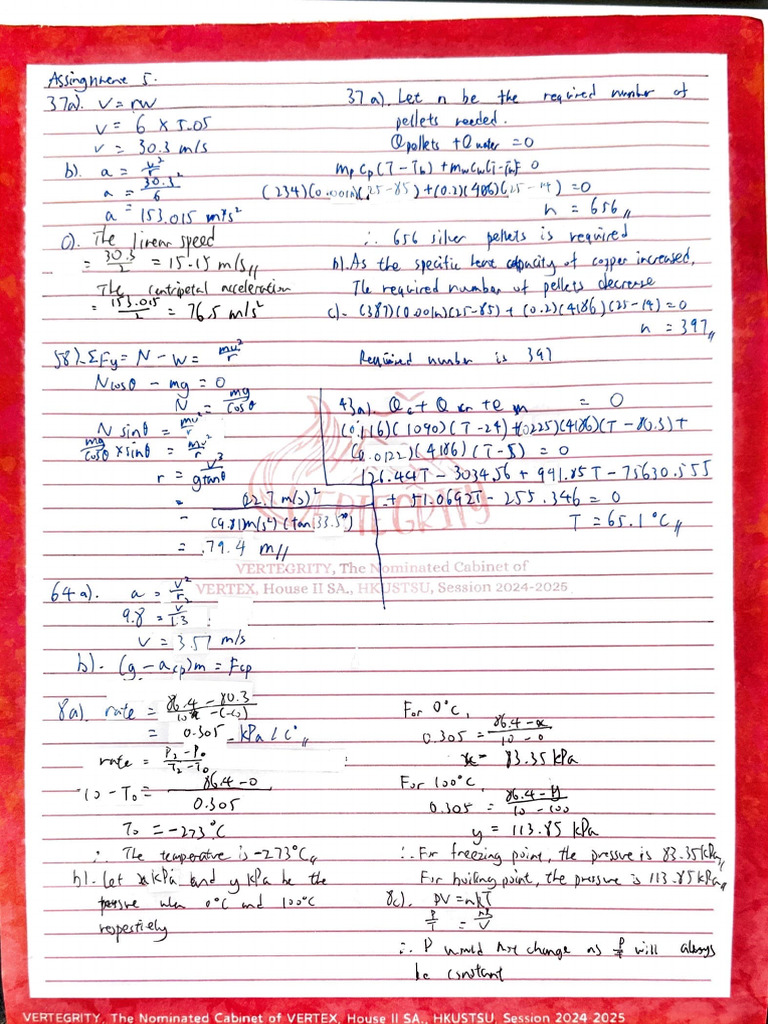 Assingment 5.
37a). v = rw
v = 6 × 5.05
v = 30.3 m/s
b). a = v²/r
a = 30.3²/6
a = 153.015 m/s²
c). The linear speed
= 30.3/2 = 15.15 m/s //
The centipetal acceleration
= 153.015/2 = 76.5 m/s²
58). ΣFy = N - W = mv²/r
N cosθ - mg = 0
N = mg/cosθ
N sinθ = mv²/r
mg/cosθ × sinθ = mv²/r
r = v²/g tanθ
= (22.7 m/s)²/(9.81)m/s²)(tan 33.5°)
= 79.4 m //
64a). a = v²/r
9.8 = v/1.3
v = 3.57 m/s
b). (g - acp)m = Fcp
37a). Let n be the required number of
pellets needed.
Qpellets + Qwater = 0
mp cp (T - Tb) + mw cw (T - Tw) = 0
(234)(0.001n)(25-85) + (0.2)(4186)(25-14) = 0
n = 656 //
∴ 656 silver pellets is required
b). As the specific heat capacity of copper increased,
The required number of pellets decrease
c). (387)(0.001n)(25-85) + (0.2)(4186)(25-14) = 0
n = 397 //
Required number is 397
43a). Qc + Q + Q = 0
(0.116)(1090)(T-24) + (0.225)(4186)(T-80.3) +
(0.0122)(4186)(T-5) = 0
126.44T - 3034.56 + 941.85T - 75630.555
+ 51.0692T - 255.346 = 0
T = 65.1 °C //
VERTEGRITY
VERTEGRITY, The Nominated Cabinet of
VERTEX, House II SA., HKUSTSU, Session 2024-2025
8a). rate = 86.4 - 80.3/10 - (-10)
= 0.305 kPa / C° //
rate = P₂ - P₀/T₂ - T₀
10 - T₀ = 86.4 - 0/0.305
T₀ = -273°C
∴ The temperature is -273°C //
b). Let x kPa and y kPa be the
pressure when 0°C and 100°C
respectively
For 0°C,
0.305 = 86.4 - x/10 - 0
x = 83.35 kPa
For 100°C,
0.305 = 86.4 - y/10 - 100
y = 113.85 kPa
∴ For freezing point, the pressure is 83.35 kPa //
For boiling point, the pressure is 113.85 kPa //
8c). PV = nRT
P/T = nR/V
∴ P would not change as P/T will always
be constant
VERTEGRITY, The Nominated Cabinet of VERTEX, House II SA., HKUSTSU, Session 2024-2025